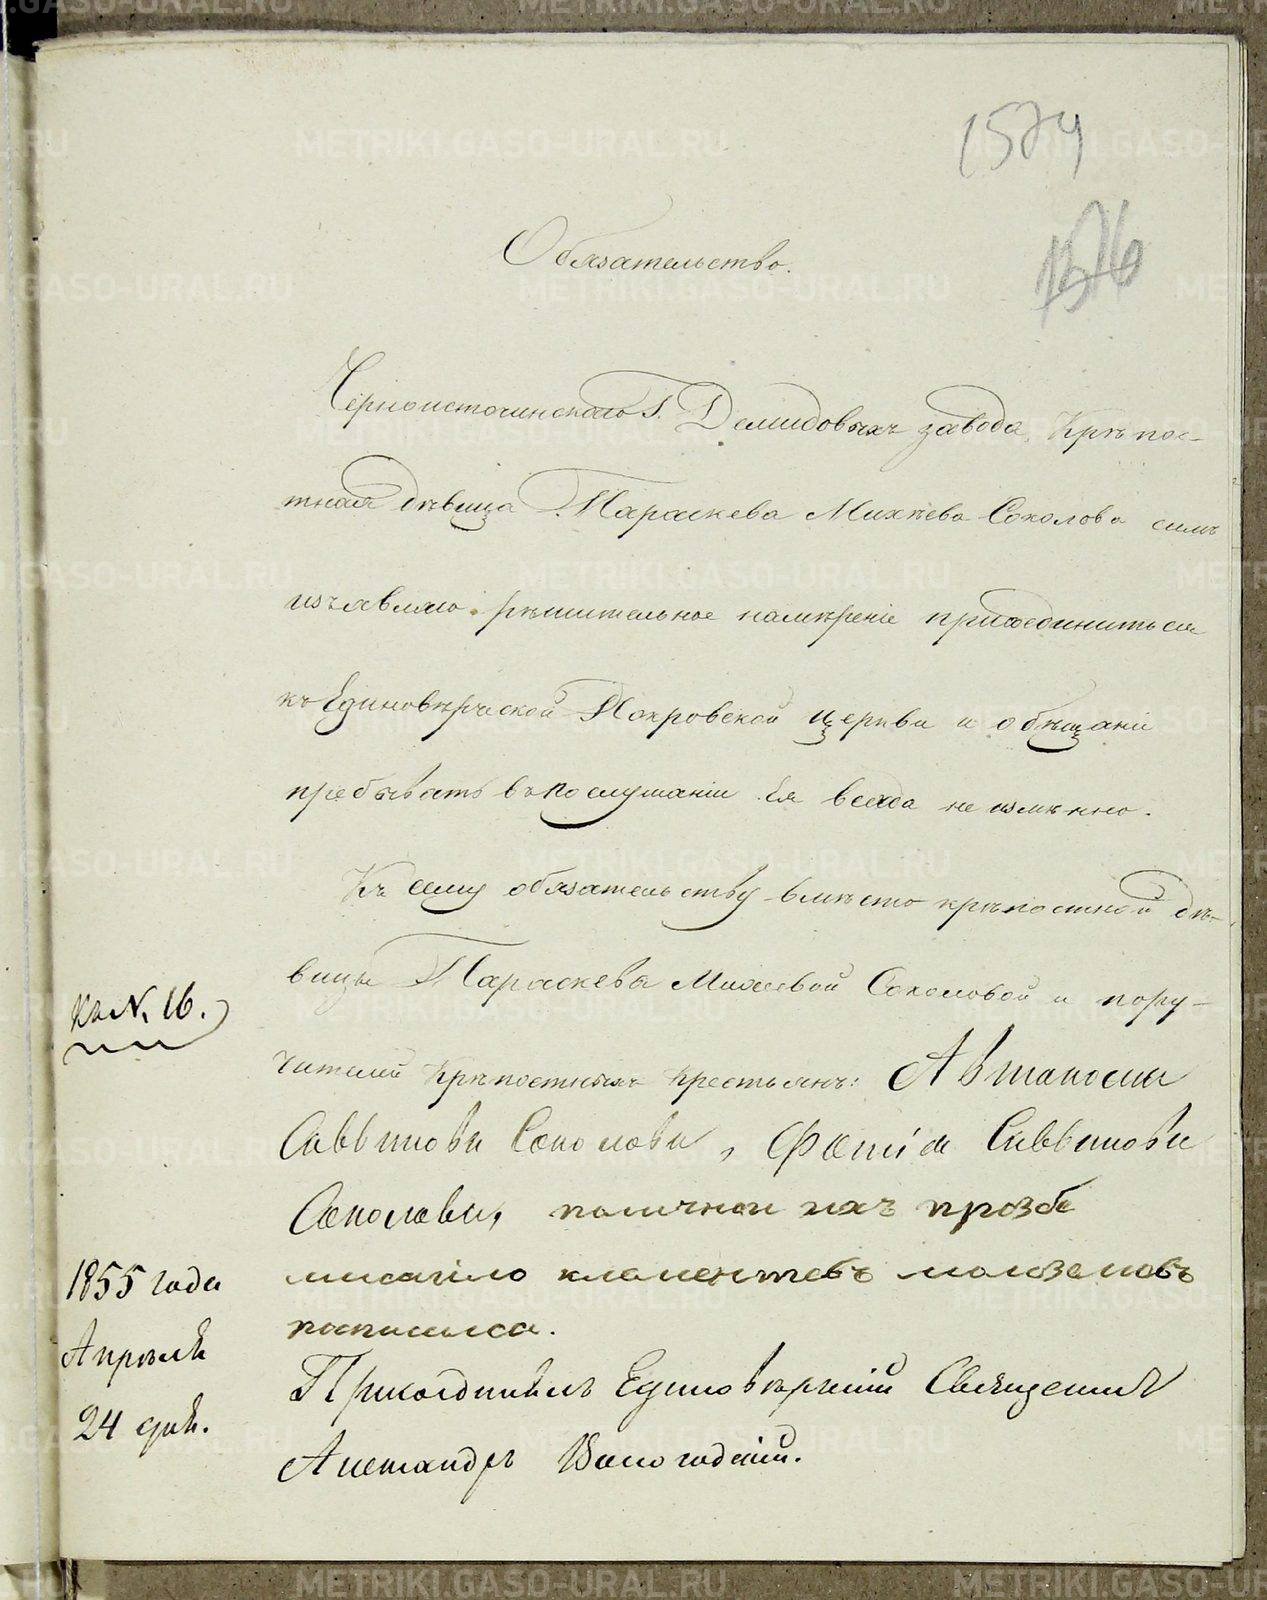 1574
1576
Обязательство.
Черноисточинскаго Г. Демидовыхъ завода, Крѣпос-
тная дѣвица Параскева Михѣева Соколова симъ
изъявляю рѣшительное намѣреніе присоединиться
къ Единовѣрческой Покровской церкви и обѣщаніе
пребывать въ послушаніи Ея всегда не измѣнно.
Къ сему обязательству вмѣсто крѣпостной дѣ-
вицы Параскевы Михеевой Соколовой и пору-
чителей крѣпостныхъ крестьянъ: Автамона
Саввинова Соколова, Фотія Саввинова
Соколова, поличной ихъ прозбе
клементевъ
росписалса.
Присоединилъ Единовѣрческій Священникъ
Александръ Вологодскій.
Къ N. 16.
1855 года
Апрѣля
24 дня.
METRIKI.GASO-URAL.RU